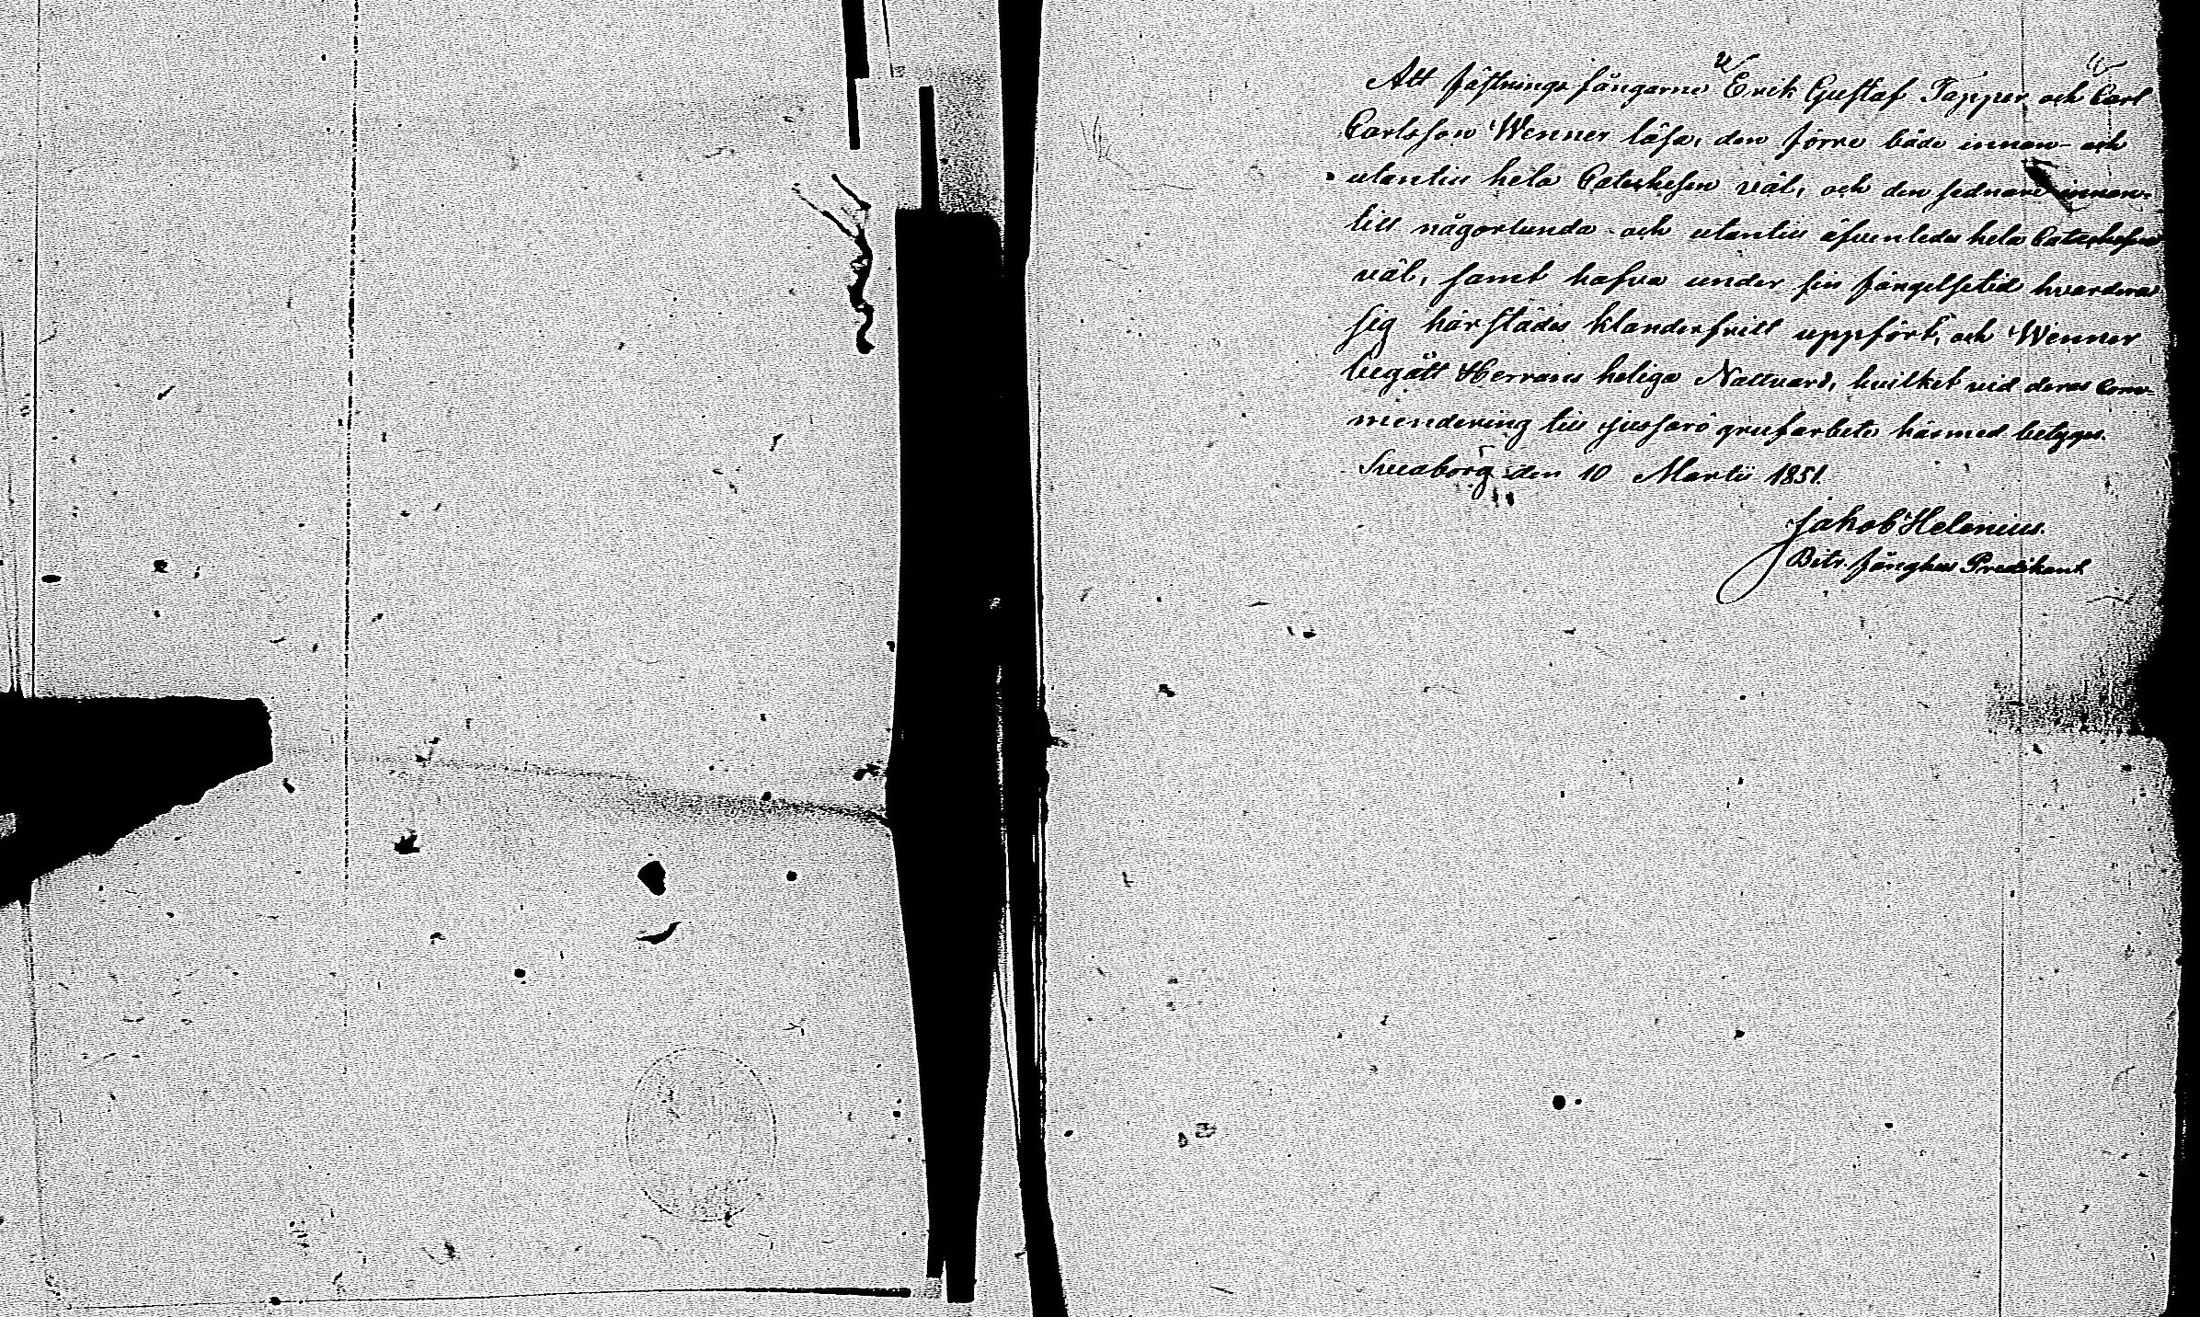 Att fästnings fångarne Erik Gustaf Tapper och Carl
Carlsson Wenner läsa, den förre både innan- och
utantill hela Catechesen väl, och den sednare innan-
till någorlunda och utantill äfvenledes hela Catechesen
väl, samt hafva under sin fängelsetid hvardera
sig härstädes klanderfritt uppfört, och Wenner
begått Herrans heliga Nattvard, hvilket vid deras Com-
mendering till Jussarö grufarbete härmed betygas.
Sveaborg den 10 Martii 1851.
Jakob Helenius.
Bitr. Fånghus Predikant